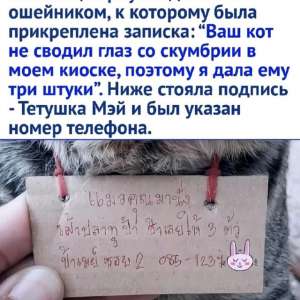 ошейником, к которому была
прикреплена записка: “Ваш кот
не сводил глаз со скумбрии в
моем киоске, поэтому я дала ему
три штуки”. Ниже стояла подпись
- Тетушка Мэй и был указан
номер телефона.
แมวคุณมานั่ง
เฝ้าปลาทู ป้า ป้าเลยให้ 3 ตัว
ป้าเมย์ ซอย 2 085-123